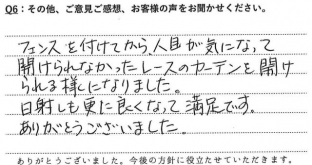 Q6：その他、ご意見ご感想、お客様の声をお聞かせください。
フェンスを付けてから、人目が気になって
開けられなかったレースのカーテンを開け
られる様になりました。
日射しも更に良くなって満足です。
ありがとうございました。
ありがとうございました。今後の方針に役立たせていただきます。